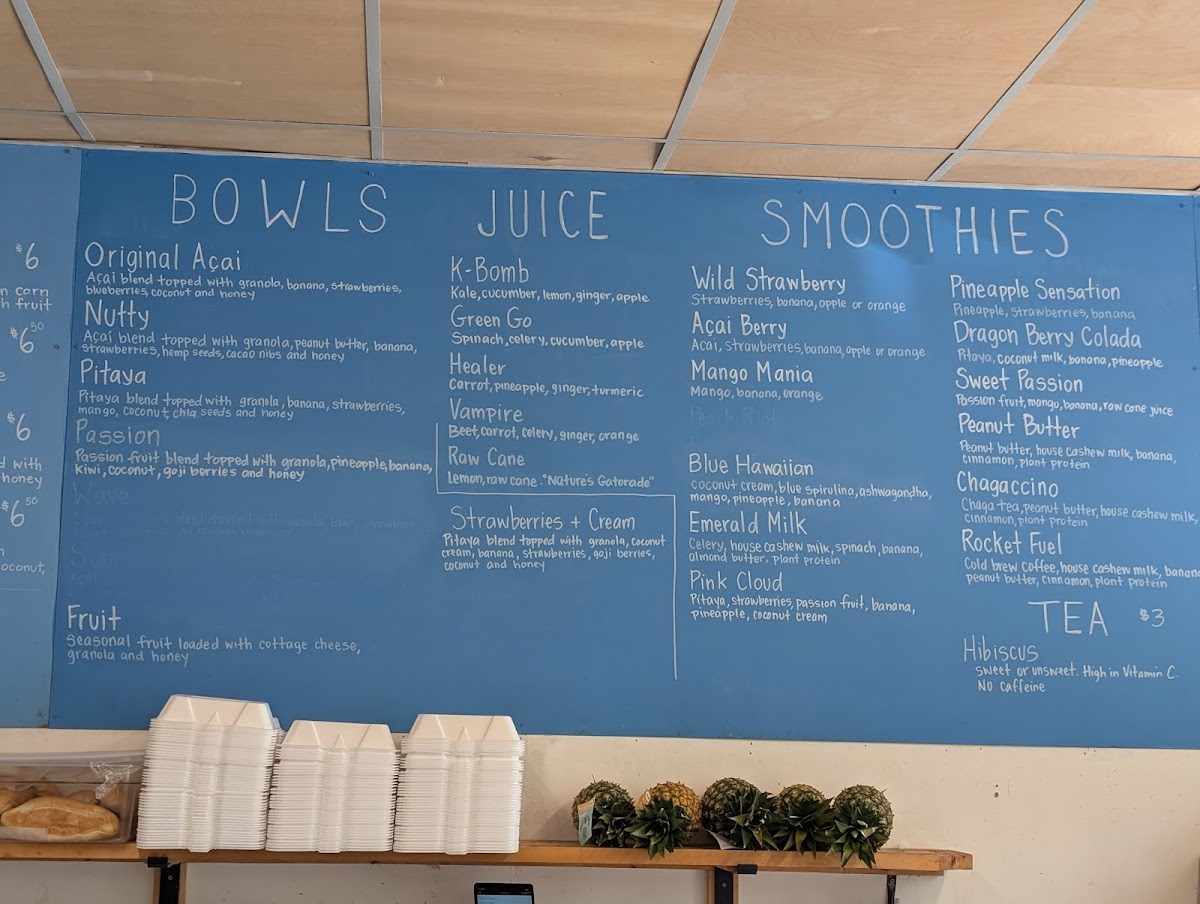 $6
n corn
h fruit
$6 50
e
$6
d with
honey
$6 50
n
oconut,
BOWLS
Original Açai
Açai blend topped with granola, banana, strawberries,
blueberries, coconut and honey
Nutty
Açai blend topped with granola, peanut butter, banana,
strawberries, hemp seeds, cacao nibs and honey
Pitaya
Pitaya blend topped with granola, banana, strawberries,
mango, coconut, chia seeds and honey
Passion
Passion fruit blend topped with granola, pineapple, banana,
kiwi, coconut, goji berries and honey
Wave
Fruit
Seasonal fruit loaded with cottage cheese,
granola and honey
JUICE
K-Bomb
Kale, cucumber, lemon, ginger, apple
Green Go
Spinach, celery, cucumber, apple
Healer
Carrot, pineapple, ginger, turmeric
Vampire
Beet, carrot, celery, ginger, orange
Raw Cane
Lemon, raw cane. "Nature's Gatorade"
Strawberries + Cream
Pitaya blend topped with granola, coconut
cream, banana, strawberries, goji berries,
coconut and honey
SMOOTHIES
Wild Strawberry
Strawberries, banana, apple or orange
Açai Berry
Acai, strawberries, banana, apple or orange
Mango Mania
Mango, banana, orange
Peach Riot
Blue Hawaiian
coconut cream, blue spirulina, ashwagandha,
mango, pineapple, banana
Emerald Milk
Celery, house cashew milk, spinach, banana,
almond butter, plant protein
Pink Cloud
Pitaya, strawberries, passion fruit, banana,
pineapple, coconut cream
Pineapple Sensation
Pineapple, strawberries, banana
Dragon Berry Colada
Pitaya, coconut milk, banana, pineapple
Sweet Passion
Passion fruit, mango, banana, raw cane juice
Peanut Butter
Peanut butter, house cashew milk, banana,
cinnamon, plant protein
Chagaccino
Chaga tea, peanut butter, house cashew milk,
cinnamon, plant protein
Rocket Fuel
Cold brew coffee, house cashew milk, banana
peanut butter, cinnamon, plant protein
TEA $3
Hibiscus
sweet or unsweet. High in Vitamin C.
No caffeine